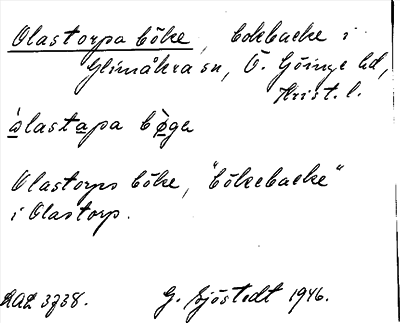 Olastorpa böke, bokbacke i
Glimåkra sn, Ö. Göinge hd,
Krist. l.
òlastapa bø̀ga
Olastorps böke, "bökebacke"
i Olastorp.
3738.
G. Sjöstedt 1946.